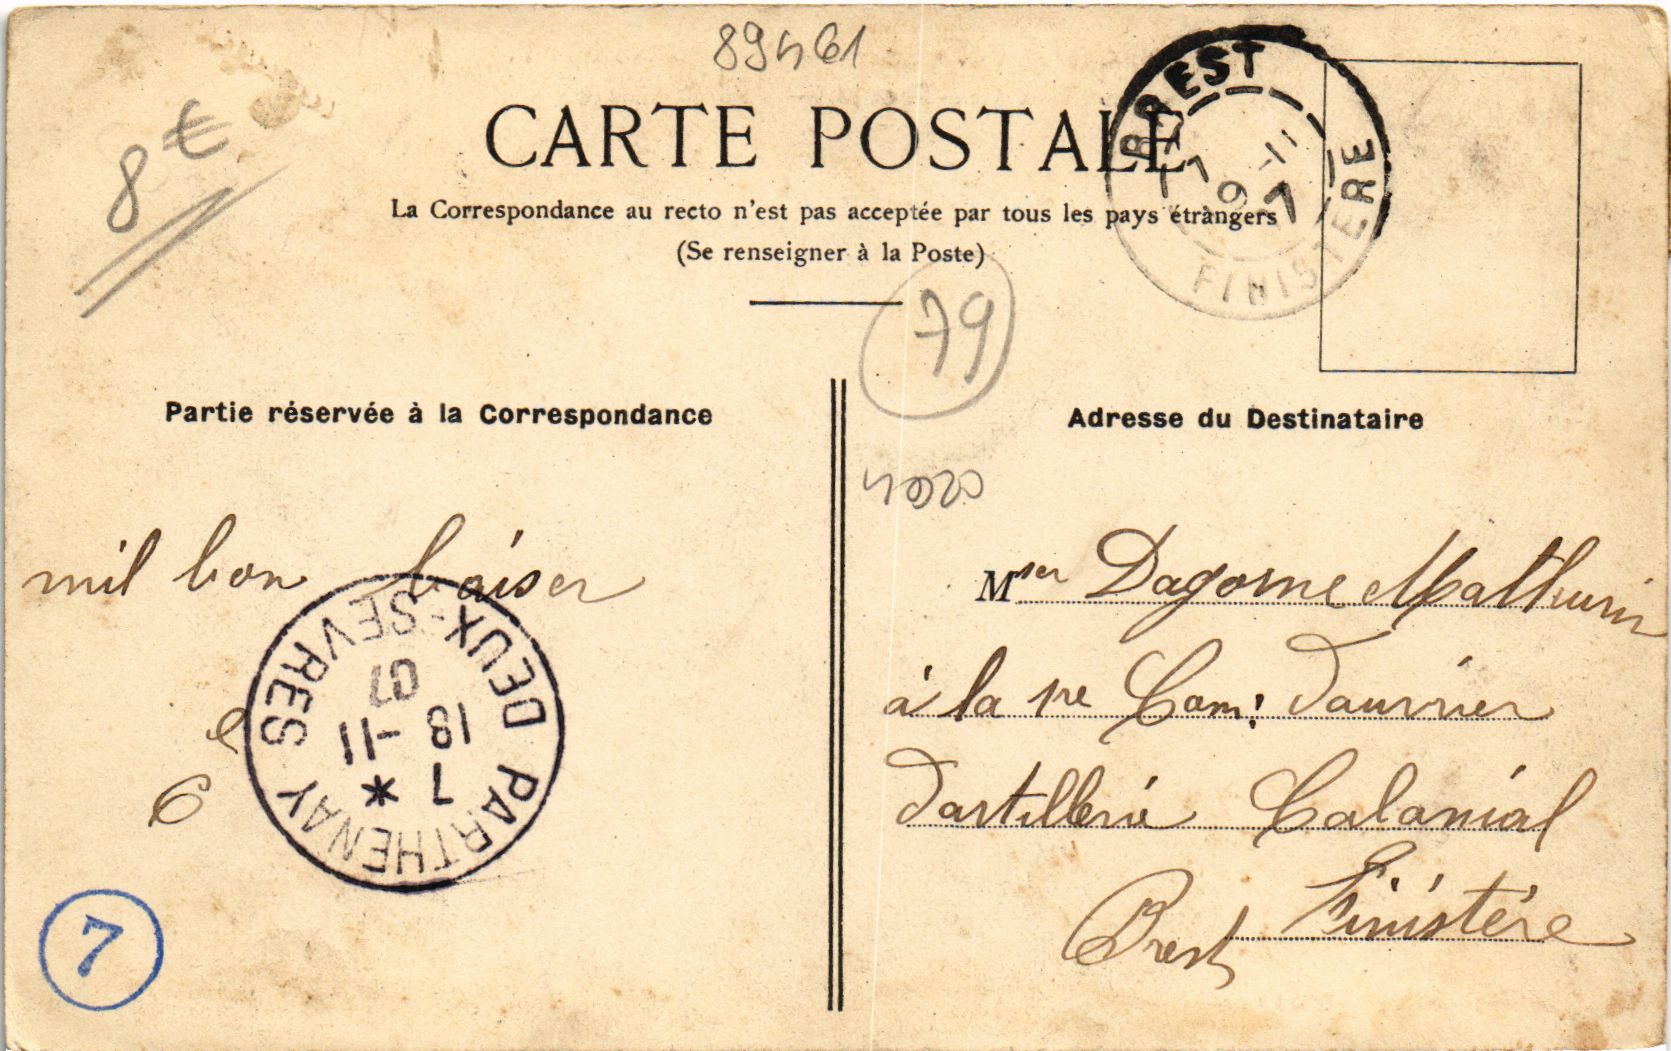 89461
8€
CARTE POSTALE
La Correspondance au recto n'est pas acceptée par tous les pays étrangers
(Se renseigner à la Poste)
BREST
FINISTERE
7
9-11
79
Partie réservée à la Correspondance
Adresse du Destinataire
mil bon baiser
Msier Dagorne Mathurin
à la 1re Com: Douvrier
Dartillerie Colonial
Brest Finistère
PARTHENAY
DEUX-SEVRES
7 *
18 -11
07
7